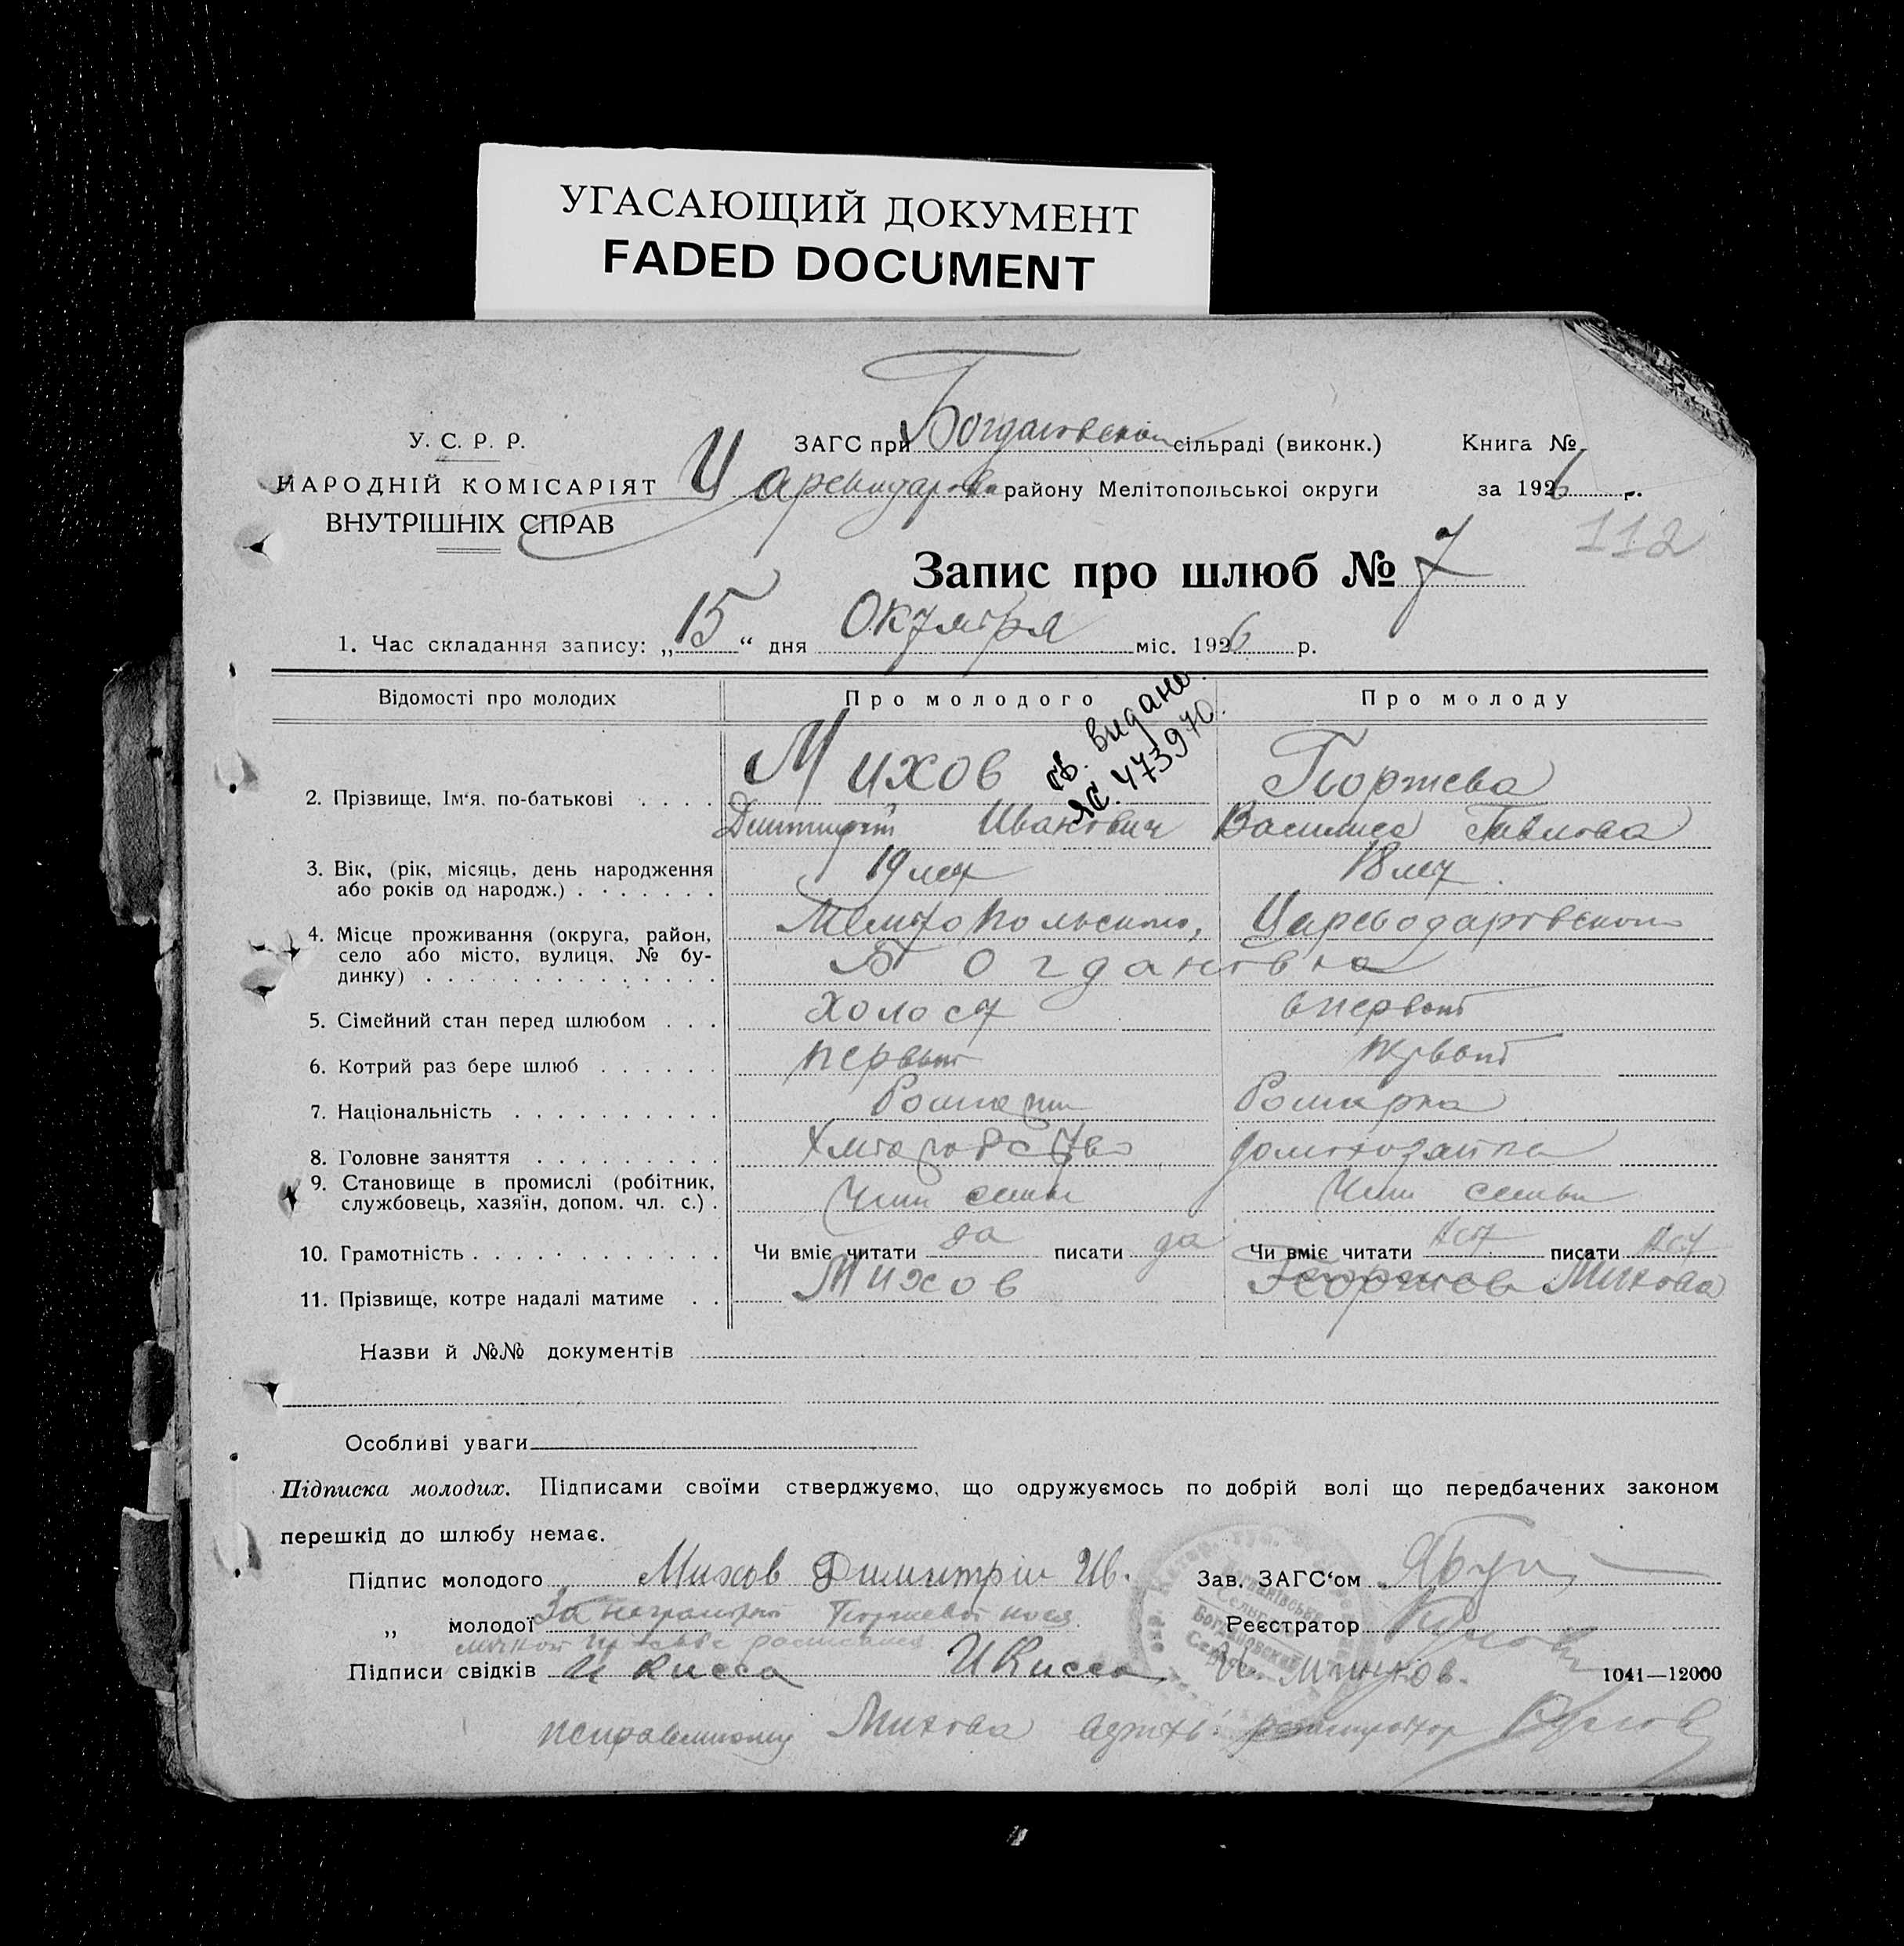 УГАСАЮЩИЙ ДОКУМЕНТ
FADED DOCUMENT
У. С. Р. Р.
НАРОДНІЙ КОМІСАРІЯТ
ВНУТРІШНІХ СПРАВ
ЗАГС при Богдановской сільраді (виконк.)
району Мелітопольської округи
Книга №
за 1926 р.
112
Запис про шлюб № 7
1. Час складання запису: „15“ дня Октября міс. 1926 р.
Відомості про молодих Про молодого Про молоду
св. видано.
ЯС. 473970.
2. Прізвище, Ім'я, по-батькові . . . . Михов Георгиева
Дмитрий Иванович Василиса Павлова
3. Вік, (рік, місяць, день народження
або років од народж.) . . . . . . . 19 лет 18 лет
4. Місце проживання (округа, район,
село або місто, вулиця, № бу-
динку) . . . . . . . . . . . . . .
Мелитопольского, Цареводаровского
Богдановка
5. Сімейний стан перед шлюбом . . . холост
6. Котрий раз бере шлюб . . . . . . первый первый
7. Національність . . . . . . . . . .
8. Головне заняття . . . . . . . . . Хлеборобство домохозяйка
9. Становище в промислі (робітник,
службовець, хазяїн, допом. чл. с.) . Член семьи Член семьи
10. Грамотність . . . . . . . . . . . . Чи вміє читати да писати да Чи вміє читати нет писати нет
11. Прізвище, котре надалі матиме . . Михов Михова
Назви й №№ документів
Особливі уваги
Підписка молодих. Підписами своїми стверджуємо, що одружуємось по добрій волі що передбачених законом
перешкід до шлюбу немає.
Підпис молодого Михов Димитрий Ив. Зав. ЗАГС'ом
„ молодої За неграмотной Георгиевой Реєстратор
Підписи свідків И Кисса И Кисса 1041—12000
исправленному Михова верить: регистратор